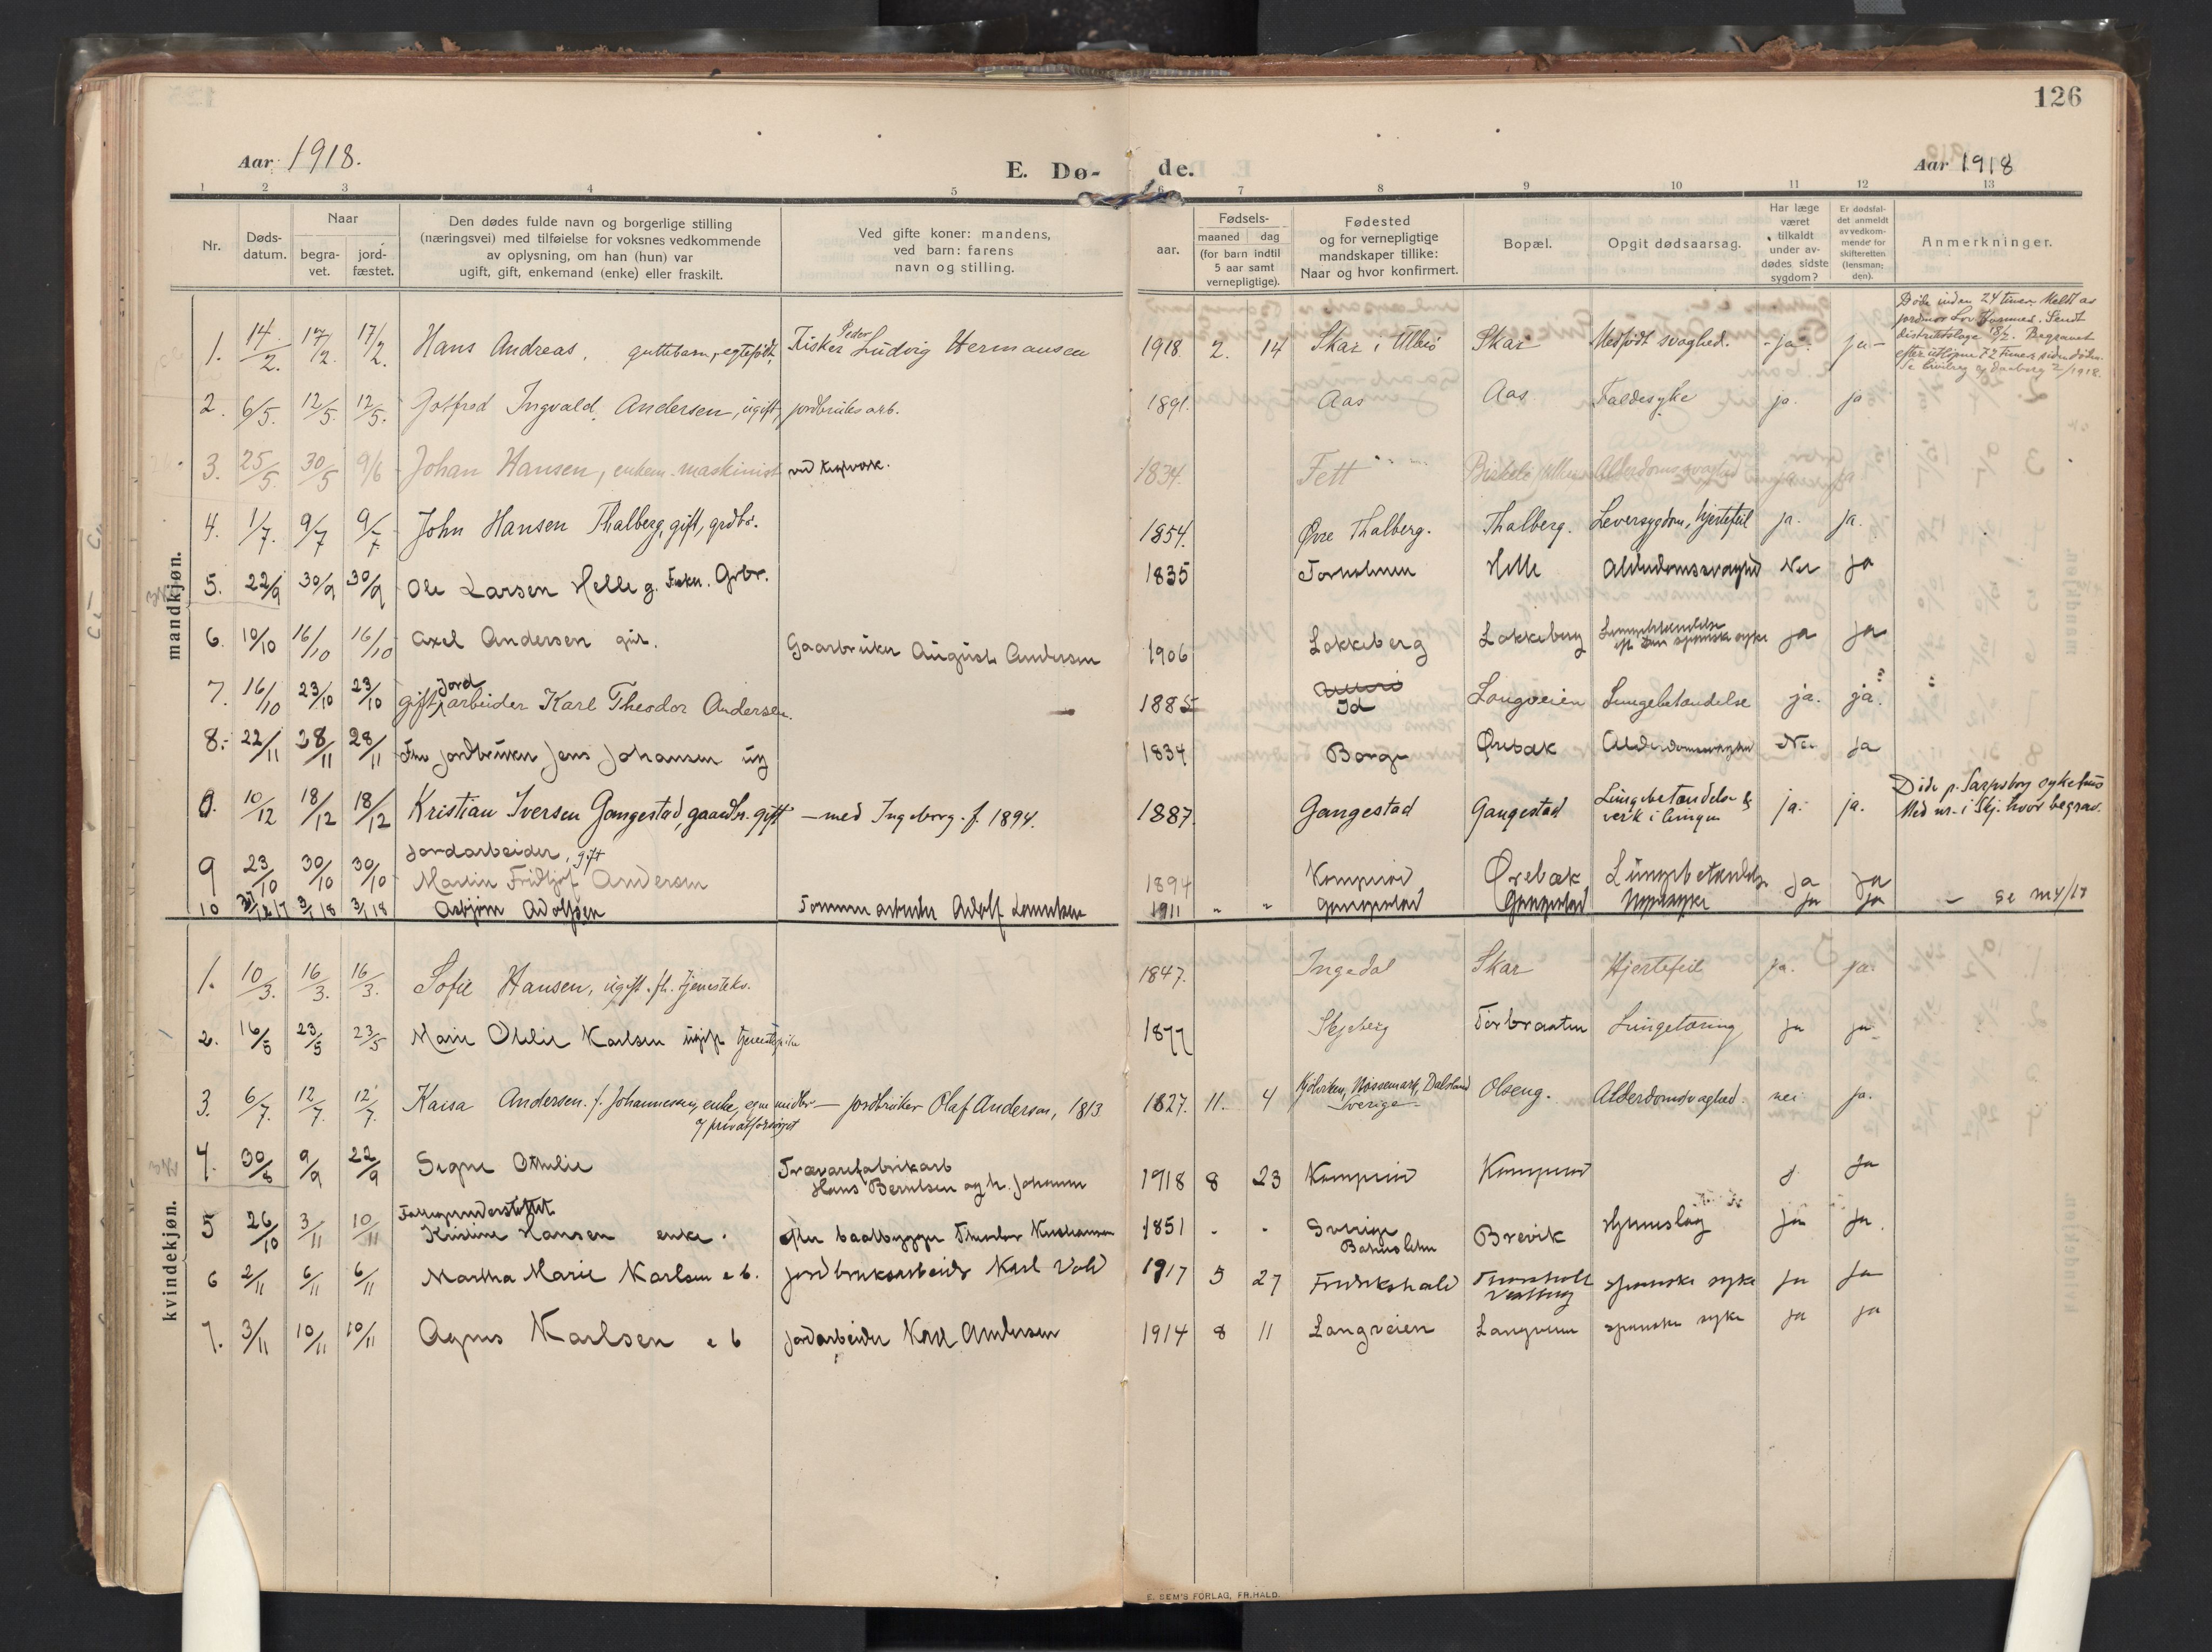 126
Aar 1918.
E. Dø-
de.
Aar 1918
1 2 3 4 5 6 7 8 9 10 11 12 13
Nr.
Døds-
datum.
Naar
begra-
vet.
jord-
fæstet.
Den dødes fulde navn og borgerlige stilling
(næringsvei) med tilføielse for voksnes vedkommende
av oplysning, om han (hun) var
ugift, gift, enkemand (enke) eller fraskilt.
Ved gifte koner: mandens,
ved barn: farens
navn og stilling.
aar.
Fødsels-
maaned dag
(for barn indtil
5 aar samt
vernepligtige).
Fødested
og for vernepligtige
mandskaper tillike:
Naar og hvor konfirmert.
Bopæl.
Opgit dødsaarsag.
Har læge
været
tilkaldt
under av-
dødes sidste
sygdom?
Er dødsfal-
det anmeldt
av vedkom-
mende for
skifteretten
(lensman-
den).
Anmerkninger.
mandkjøn.
Døde inden 24 timer. Meldt av
jordmor Hannes. Sendt
distriktslæge 18/2. Begravet
efter 72 timer siden døden.
2/1918.
Peder
1. 14/2. 17/2. 17/2. Hans Andreas, guttebarn, egtefødt, Fisker Ludvig Hermansen 1918. 2. 14 Skar i Ullerö Skar Medfødt svaghed. ja. ja
2. 6/5. 12/5. 12/5. Gotfred Ingvald Andersen, ugift, jordbruksarb. 1891. Aas Aas Faldesyke ja. ja
3. 25/5. 30/5 9/6 Johan Hansen, enkem. maskinist ved 1834. Fett Alderdomssvaghed ja ja
4. 1/7. 9/7 9/7 John Hansen Thalberg, gift, grdbr. 1854. Øvre Thalberg. Thalberg. Leversygdom, hjertefeil ja. ja.
5. 22/9 30/9 30/9 Ole Larsen Helle g. Grbr. 1835 Torholmen Helle Alderdomssvaghed Nei Ja
6. 10/10 16/10 16/10 Axel Andersen gut. Gaarbruker August Andersen 1906 Lokkeberg Lokkeberg Lungebetændelse
spanske syke ja ja
Jord
7. 16/10 23/10 23/10 gift arbeider Karl Theodor Andersen. 1885 Id Langveien Lungebetændelse ja. ja. "
8. 22/11 28/11 28/11 jordbruker Jens Johansen ug 1834 Borge Ørebæk Alderdomssvaghed Nei Ja
Døde p. Sarpsborg sykehus
9. 10/12 18/12 18/12 Kristian Iversen Gangestad, gaardbr. gift — med Ingeborg. f. 1894. 1887. Gangestad Gangestad Lungebetændelse &
verk i lungen ja. ja. Med nr. i Skj. hvor begrav.
Jordarbeider, gift
9 23/10 30/10 30/10 Martin Fridtjof Andersen 1894 Komperød Ørebæk Lungebetændelse Ja Ja
10 12 17 3/1 18 3/1 18 Asbjørn Adolfsen Tømmerarbeider Adolf 1911 " " Gangestad Gangestad Nyresyke Ja Ja — se nr 4/17
kvindekjøn.
1. 10/3. 16/3. 16/3. Sofie Hansen, ugift, fh. tjenestekv. 1847. Ingedal Skar Hjertefeil ja. ja.
2. 16/5 23/5 23/5 Marie Otilie Karlsen ugift tjenestepike 1877 Skjeberg Torbraaten Lungetæring ja ja
3. 6/7. 12/7. 12/7. Kaisa Andersen f. Johannesen, enke, egne midler — jordbruker Olaf Andersen, 1813 1827. 11. 4 Nössemark, Dalsland
Sverige Olseng. Alderdomssvaghed. nei ja.
og privatforsørget
4. 30/8 9/9 22/9 Signe Othilie Trævarefabrikarb
Hans Berntsen og h. Johanne 1918 8 23 Komperød Komperød Ja
Fattigunderstøttet
5 26/10 3/11 10/11 Kristine Hansen enke. efter baatbygger Theodor Kristiansen 1851 - - Sverige
Bahuslehn Brevik Hjerneslag ja ja.
6 2/11 6/11 6/11 Martha Marie Karlsen e b. jordbruksarbeider Karl Vold 1917 5 27 Fredrikshald spanske syke ja ja
7. 3/11 10/11 10/11 Agnes Karlsen e b jordarbeider Karl Andersen 1914 8 11 Langveien Langveien spanske syke ja ja
E. SEM'S FORLAG, FR.HALD.